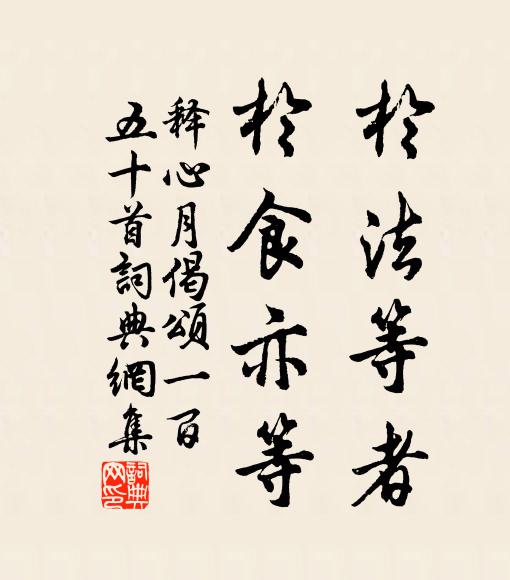 於法等者
於食亦等
释心月偈頌一百
五十首詞典網集
詞典
网印